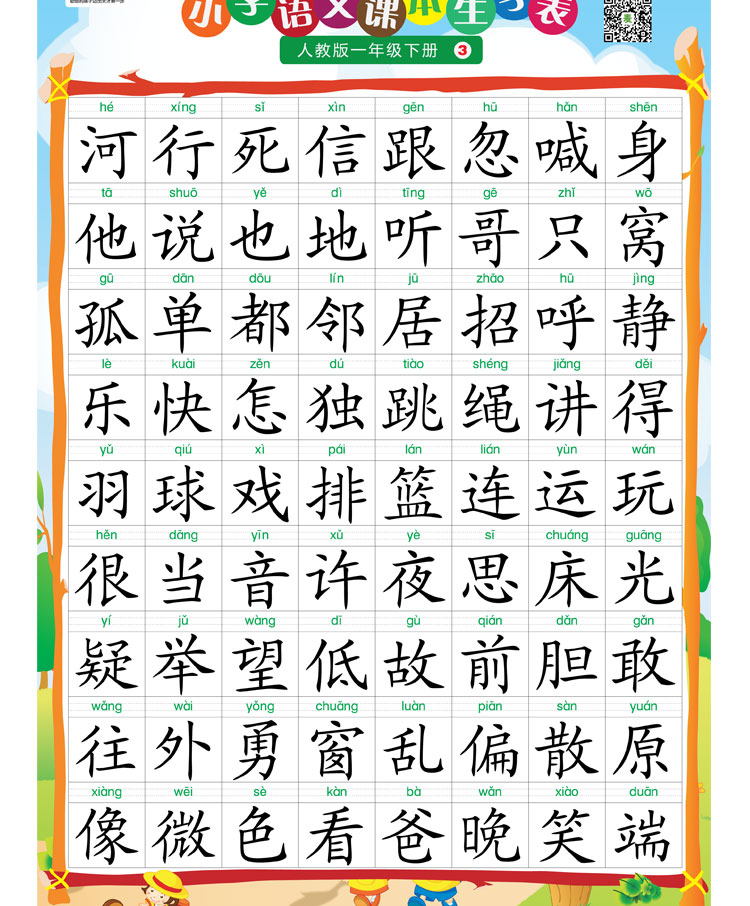 小学语文课本生字表
人教版一年级下册 3
hé xíng sǐ xìn gēn hū hǎn shēn
河 行 死 信 跟 忽 喊 身
tā shuō yě dì tīng gē zhǐ wō
他 说 也 地 听 哥 只 窝
gū dān dōu lín jū zhāo hū jìng
孤 单 都 邻 居 招 呼 静
lè kuài zěn dú tiào shéng jiǎng děi
乐 快 怎 独 跳 绳 讲 得
yǔ qiú xì pái lán lián yùn wán
羽 球 戏 排 篮 连 运 玩
hěn dāng yīn xǔ yè sī chuáng guāng
很 当 音 许 夜 思 床 光
yí jǔ wàng dī gù qián dǎn gǎn
疑 举 望 低 故 前 胆 敢
wǎng wài yǒng chuāng luàn piān sàn yuán
往 外 勇 窗 乱 偏 散 原
xiàng wēi sè kàn bà wǎn xiào duān
像 微 色 看 爸 晚 笑 端